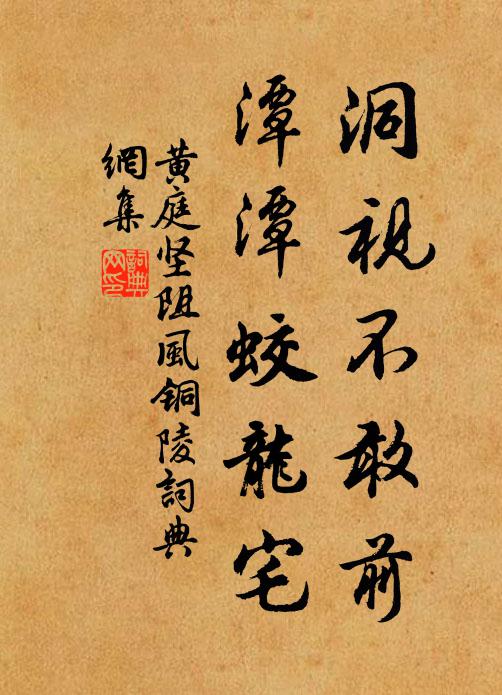 洞視不敢前
潭潭蛟龍宅
黄庭坚阻風铜陵詞典
網集
詞典
网印